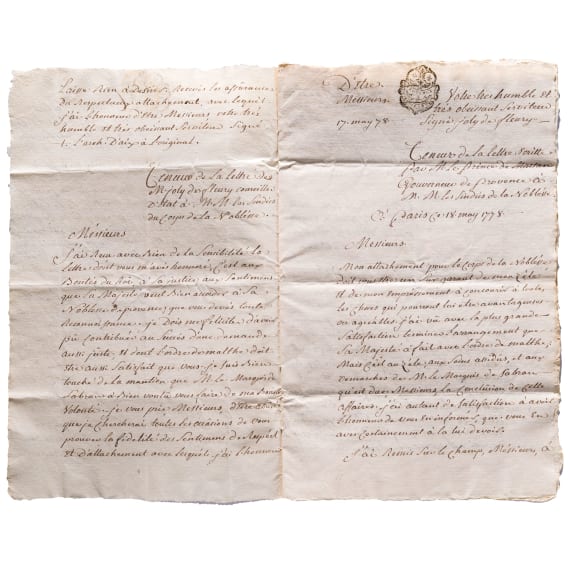 Laisse Rien a Desirer. Recevés les assurances
du Respectueux attachement, avec lequel
j'ai l'honneur d'Etre Messieurs votre très
humble et très obeissant Serviteur Signé
L'arch. D'aix a L'original.
Teneur de la Lettre de
M. joly de fleury conseiller
d'Etat à M.M. les Sindics
du Corps de la Noblesse.
Messieurs
J'ai Reçu avec Bien de la Sensibilité la
lettre dont vous m'avés honnoré, C'est aux
Bontés du Roi, à sa justice, aux Sentimens
que Sa Majesté veut Bien accorder à Sa
Noblesse de provence, que vous devés toute
Reconnoissance, je Dois me feliciter d'avoir
pû contribuer au Succès d'une demande
aussi juste, Et dont l'ordre de malthe doit
être aussi Satisfait que vous, je Suis Bien
touché de la mention que M. Le Marquis de
Sabran à Bien voulu vous faire de ma Bonne
Volonté. je vous prie, Messieurs, d'Etre assurés
que je Chercherai toutes les occasions de vous
prouver la fidelité des Sentimens de Respect
et d'attachement avec lesquels j'ai l'honneur
D'Etre
Messieurs
17. may 78
Votre tres humble et
très obeissant Serviteur
Signé joly de fleury
Teneur de la lettre Ecritte
par M. Le prince de
Gouverneur de provence à
M.M. les Sindics de la Noblesse
à Paris Ce 18 may 1778.
Messieurs
Mon attachement pour le Corps de la Noblesse
doit vous être un Sur garant de mon Zèle
Et de mon Empressement à concourir à toutes
les choses qui pourront lui être avantageuses
ou agréables. j'ai vû avec la plus grande
Satisfaction terminer l'arrangement que
Sa Majesté a fait avec l'ordre de malthe,
Mais C'est au Zèle, aux Soins assidus, et aux
demarches de M. Le Marquis de Sabran
qu'est due Messieurs la Conclusion de Cette
affaire, j'ai autant de Satisfaction à avoir
l'honneur de vous en informer, que vous en
avés certainement à la lui devoir.
J'ai Remis Sur le champ, Messieurs, à